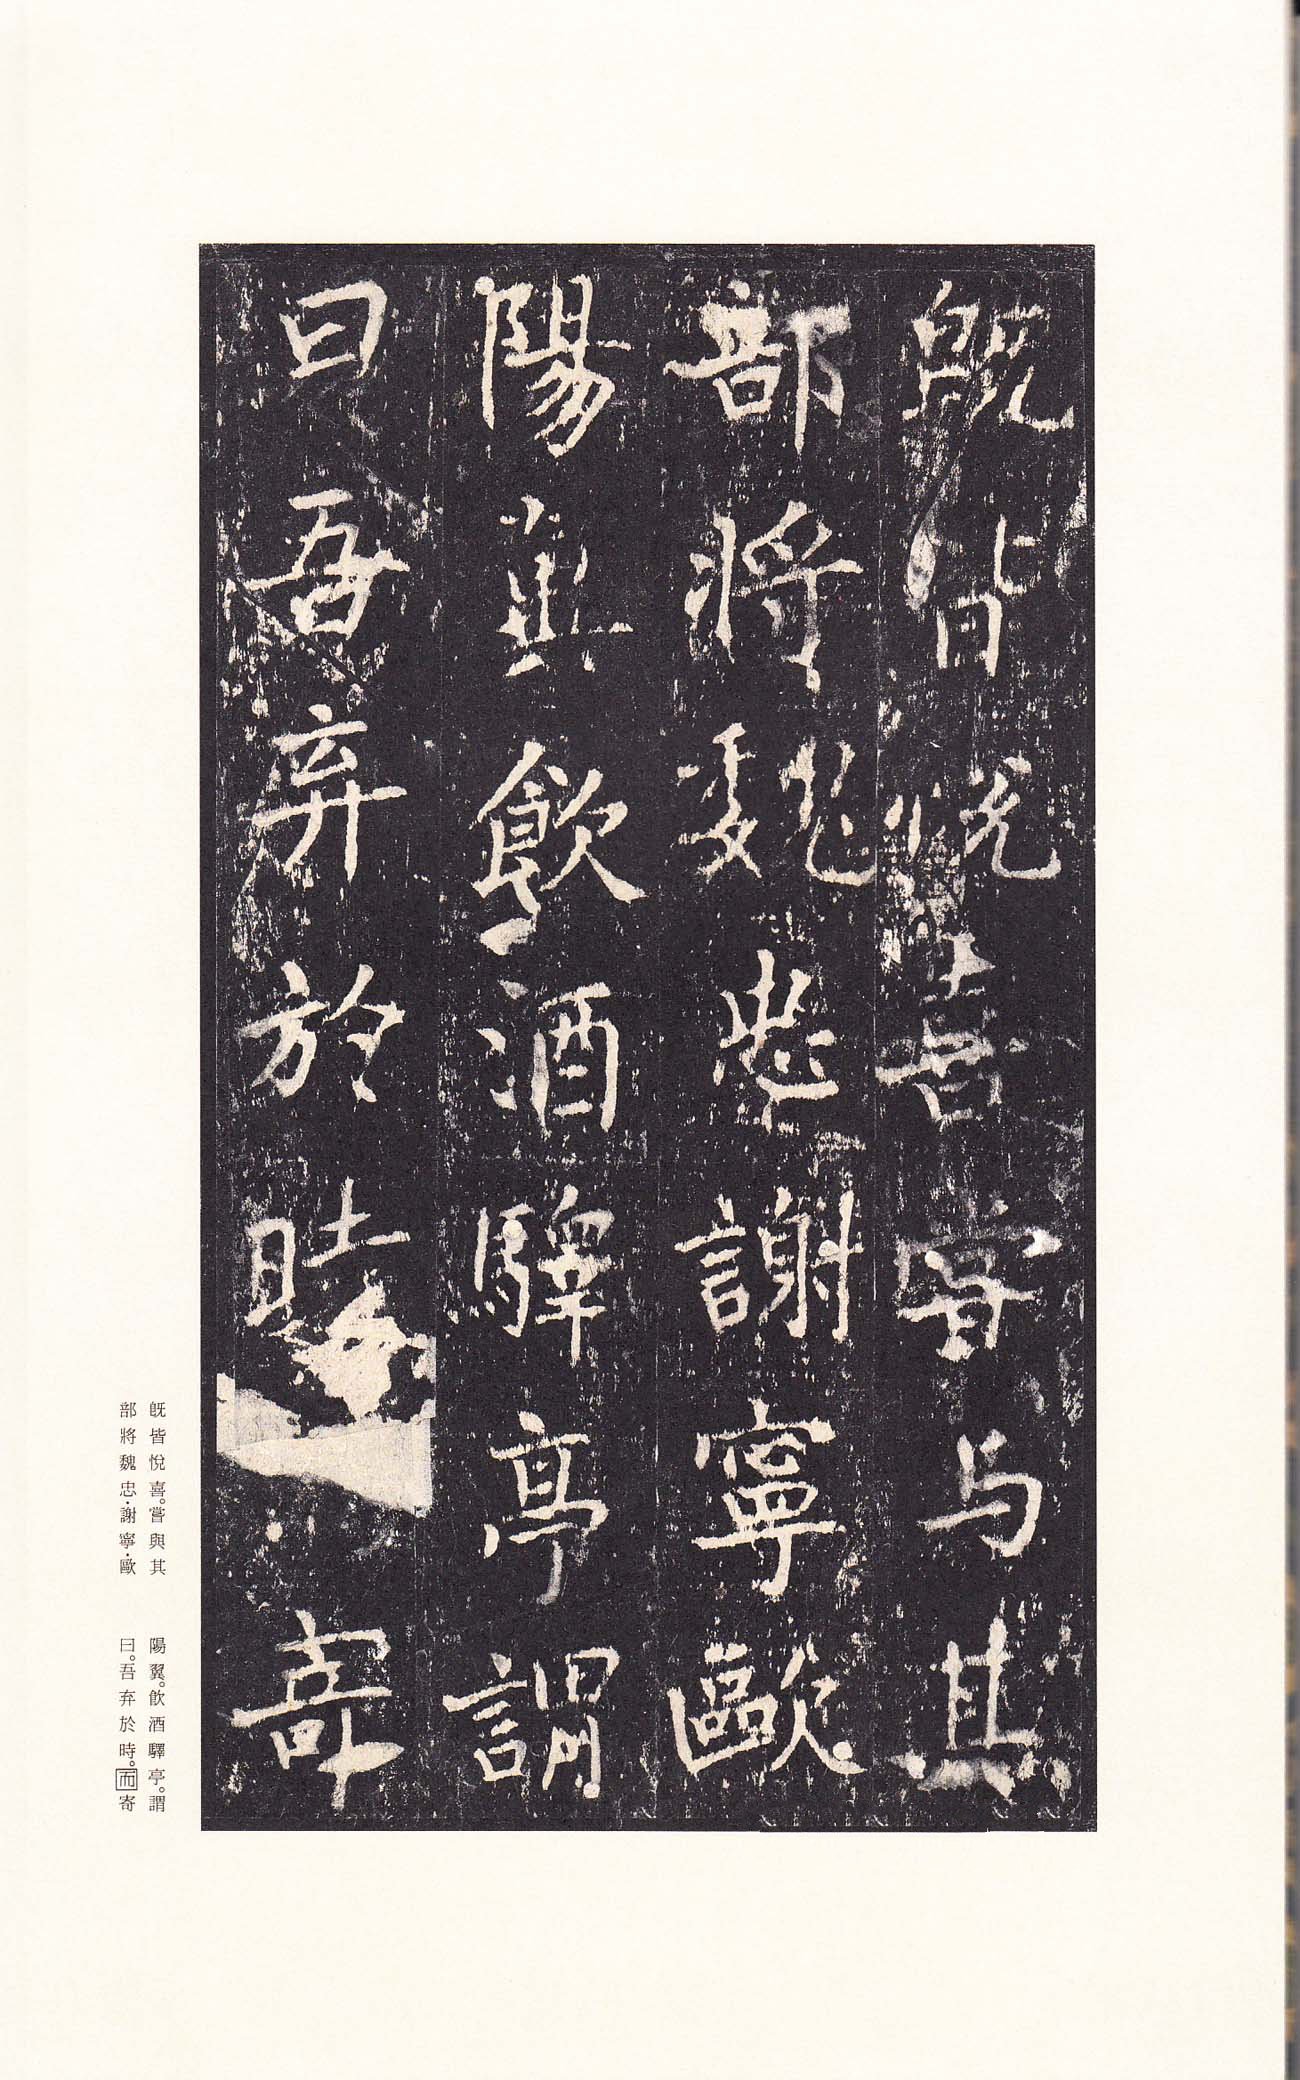 既皆悅喜嘗与其
部將魏忠謝寧歐
陽翼飲酒驛亭謂
曰吾弃於時 寄
既皆悅喜。嘗與其
部將魏忠·謝寧·歐
陽翼。飲酒驛亭。謂
曰。吾弃於時。而寄